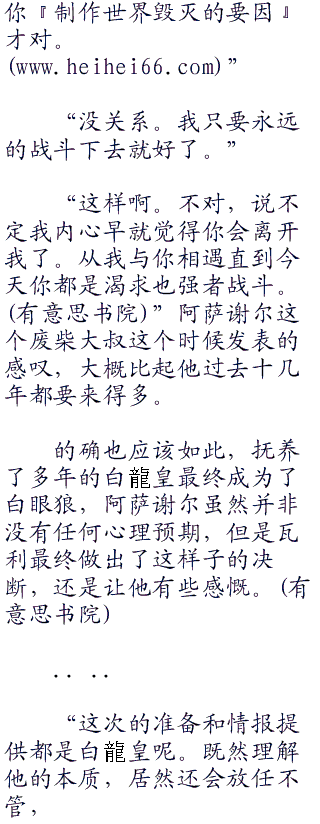 你『制作世界毁灭的要因』
才对。
(www.heihei66.com)”
“没关系。我只要永远
的战斗下去就好了。”
“这样啊。不对，说不
定我内心早就觉得你会离开
我了。从我与你相遇直到今
天你都是渴求也强者战斗。
(有意思书院)”阿萨谢尔这
个废柴大叔这个时候发表的
感叹，大概比起他过去十几
年都要来得多。
的确也应该如此，抚养
了多年的白龍皇最终成为了
白眼狼，阿萨谢尔虽然并非
没有任何心理预期，但是瓦
利最终做出了这样子的决
断，还是让他有些感慨。(有
意思书院)
．．．．
“这次的准备和情报提
供都是白龍皇呢。既然理解
他的本质，居然还会放任不
管，